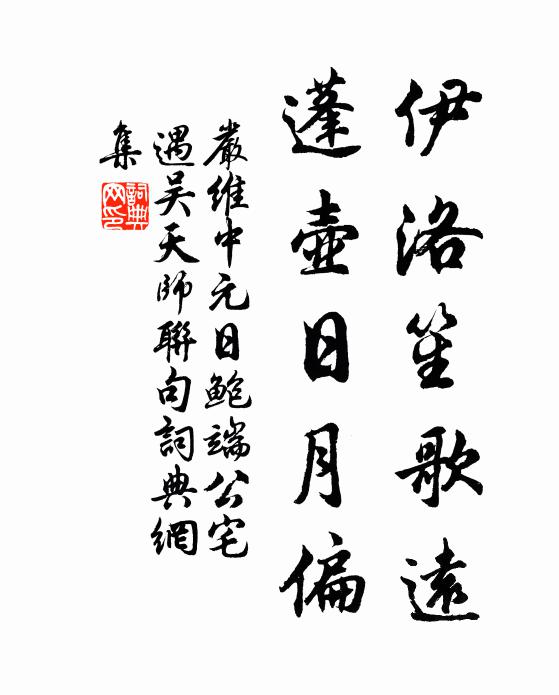 伊洛笙歌遠
蓬壺日月偏
嚴維中元日鮑端公宅
遇吴天師聯句詞典網
集
詞典网印